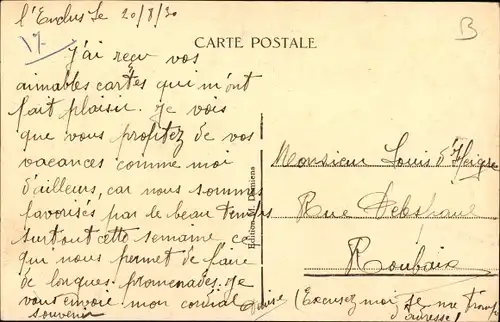 l'Ecluse le 20/8/30
B
CARTE POSTALE
J'ai reçu vos
aimables cartes qui m'ont
fait plaisir. Je vois
que vous profitez de vos
vacances comme moi
d'ailleurs, car nous sommes
favorisés par le beau temps
surtout cette semaine ce
qui nous permet de faire
de longues promenades. Je
vous envoie mon cordial
souvenir
Monsieur Louis d'
Rue
Roubaix
(Excusez moi
d'adresse!